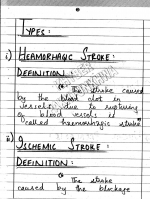 TYPES:
i) HEAMORHAGIC STROKE:
DEFINITION:
The stroke caused
by the blood clot in
vessels due to rupturing
of blood vessels is
called haemorrhagic stroke
ii) ISCHEMIC STROKE:
DEFINITION:
The stroke
caused by the blockage